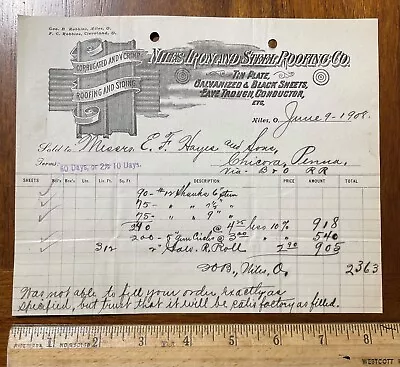 Geo. B. Robbins, Niles, O.
F. C. Robbins, Cleveland, O.
NILES IRON AND STEEL ROOFING CO.
CORRUGATED AND V CRIMP
ROOFING AND SIDING
TIN PLATE,
GALVANIZED & BLACK SHEETS,
EAVE TROUGH, CONDUCTOR,
ETC.
Niles, O. June 9-1908.
Sold to Messrs E. F. Hayes and Sons,
Chicora, Penna,
Terms: 60 Days, or 2% 10 Days.
Via B & O RR
SHEETS DESCRIPTION PRICE AMOUNT
90 - #12 Shanks 6"
75 - " " 7½"
75 - " " 9"
240 @ 4.25 less 10% 918
200 - 5" @ 3.00 " " 540
312 2" Roll 2.90 905
FOB, Niles, O. 2363
Was not able to fill your order exactly as
specified, but trust that it will be satisfactory as filled.
1 2 3 4 5 6 7 8 9
WESTCOTT